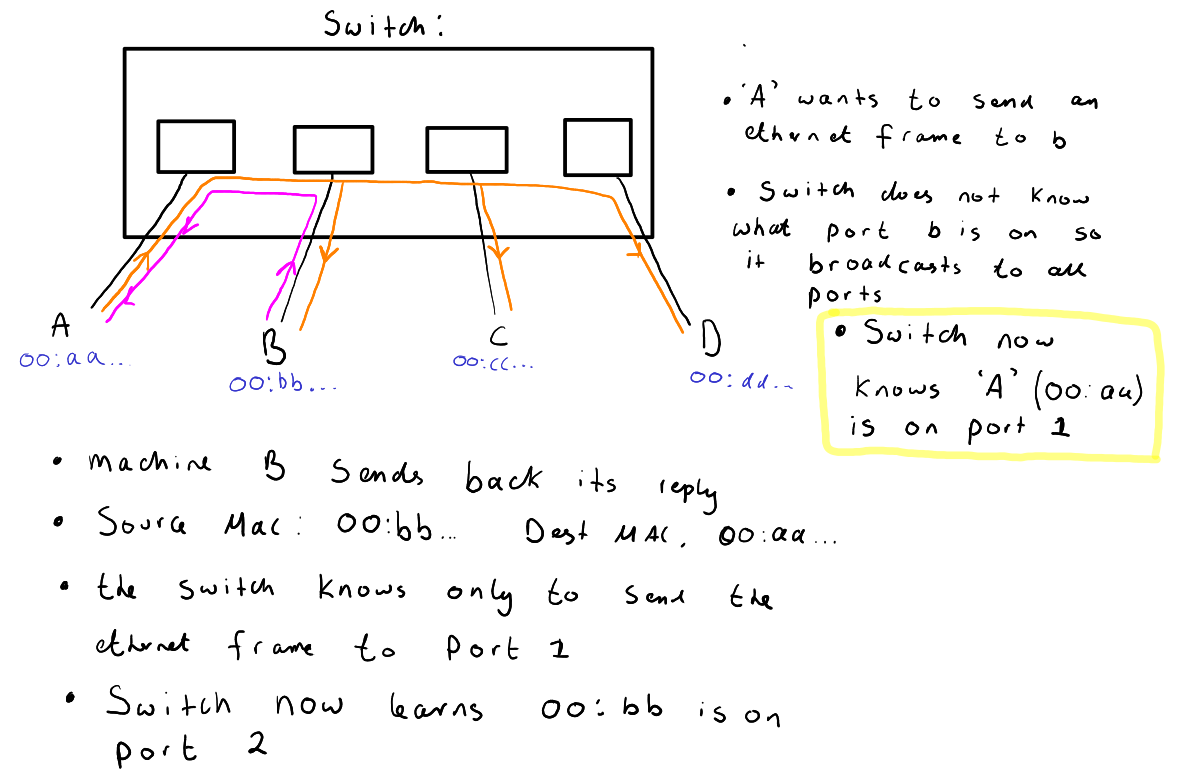 Switch:
• 'A' wants to send an
ethernet frame to b
• Switch does not know
what port b is on so
it broadcasts to all
ports
• Switch now
knows 'A' (00:aa)
is on port 1
A
00:aa...
B
00:bb...
C
00:cc...
D
00:dd...
• machine B sends back its reply
• Source Mac: 00:bb... Dest MAC. 00:aa...
• the switch knows only to send the
ethernet frame to Port 1
• Switch now learns 00:bb is on
port 2